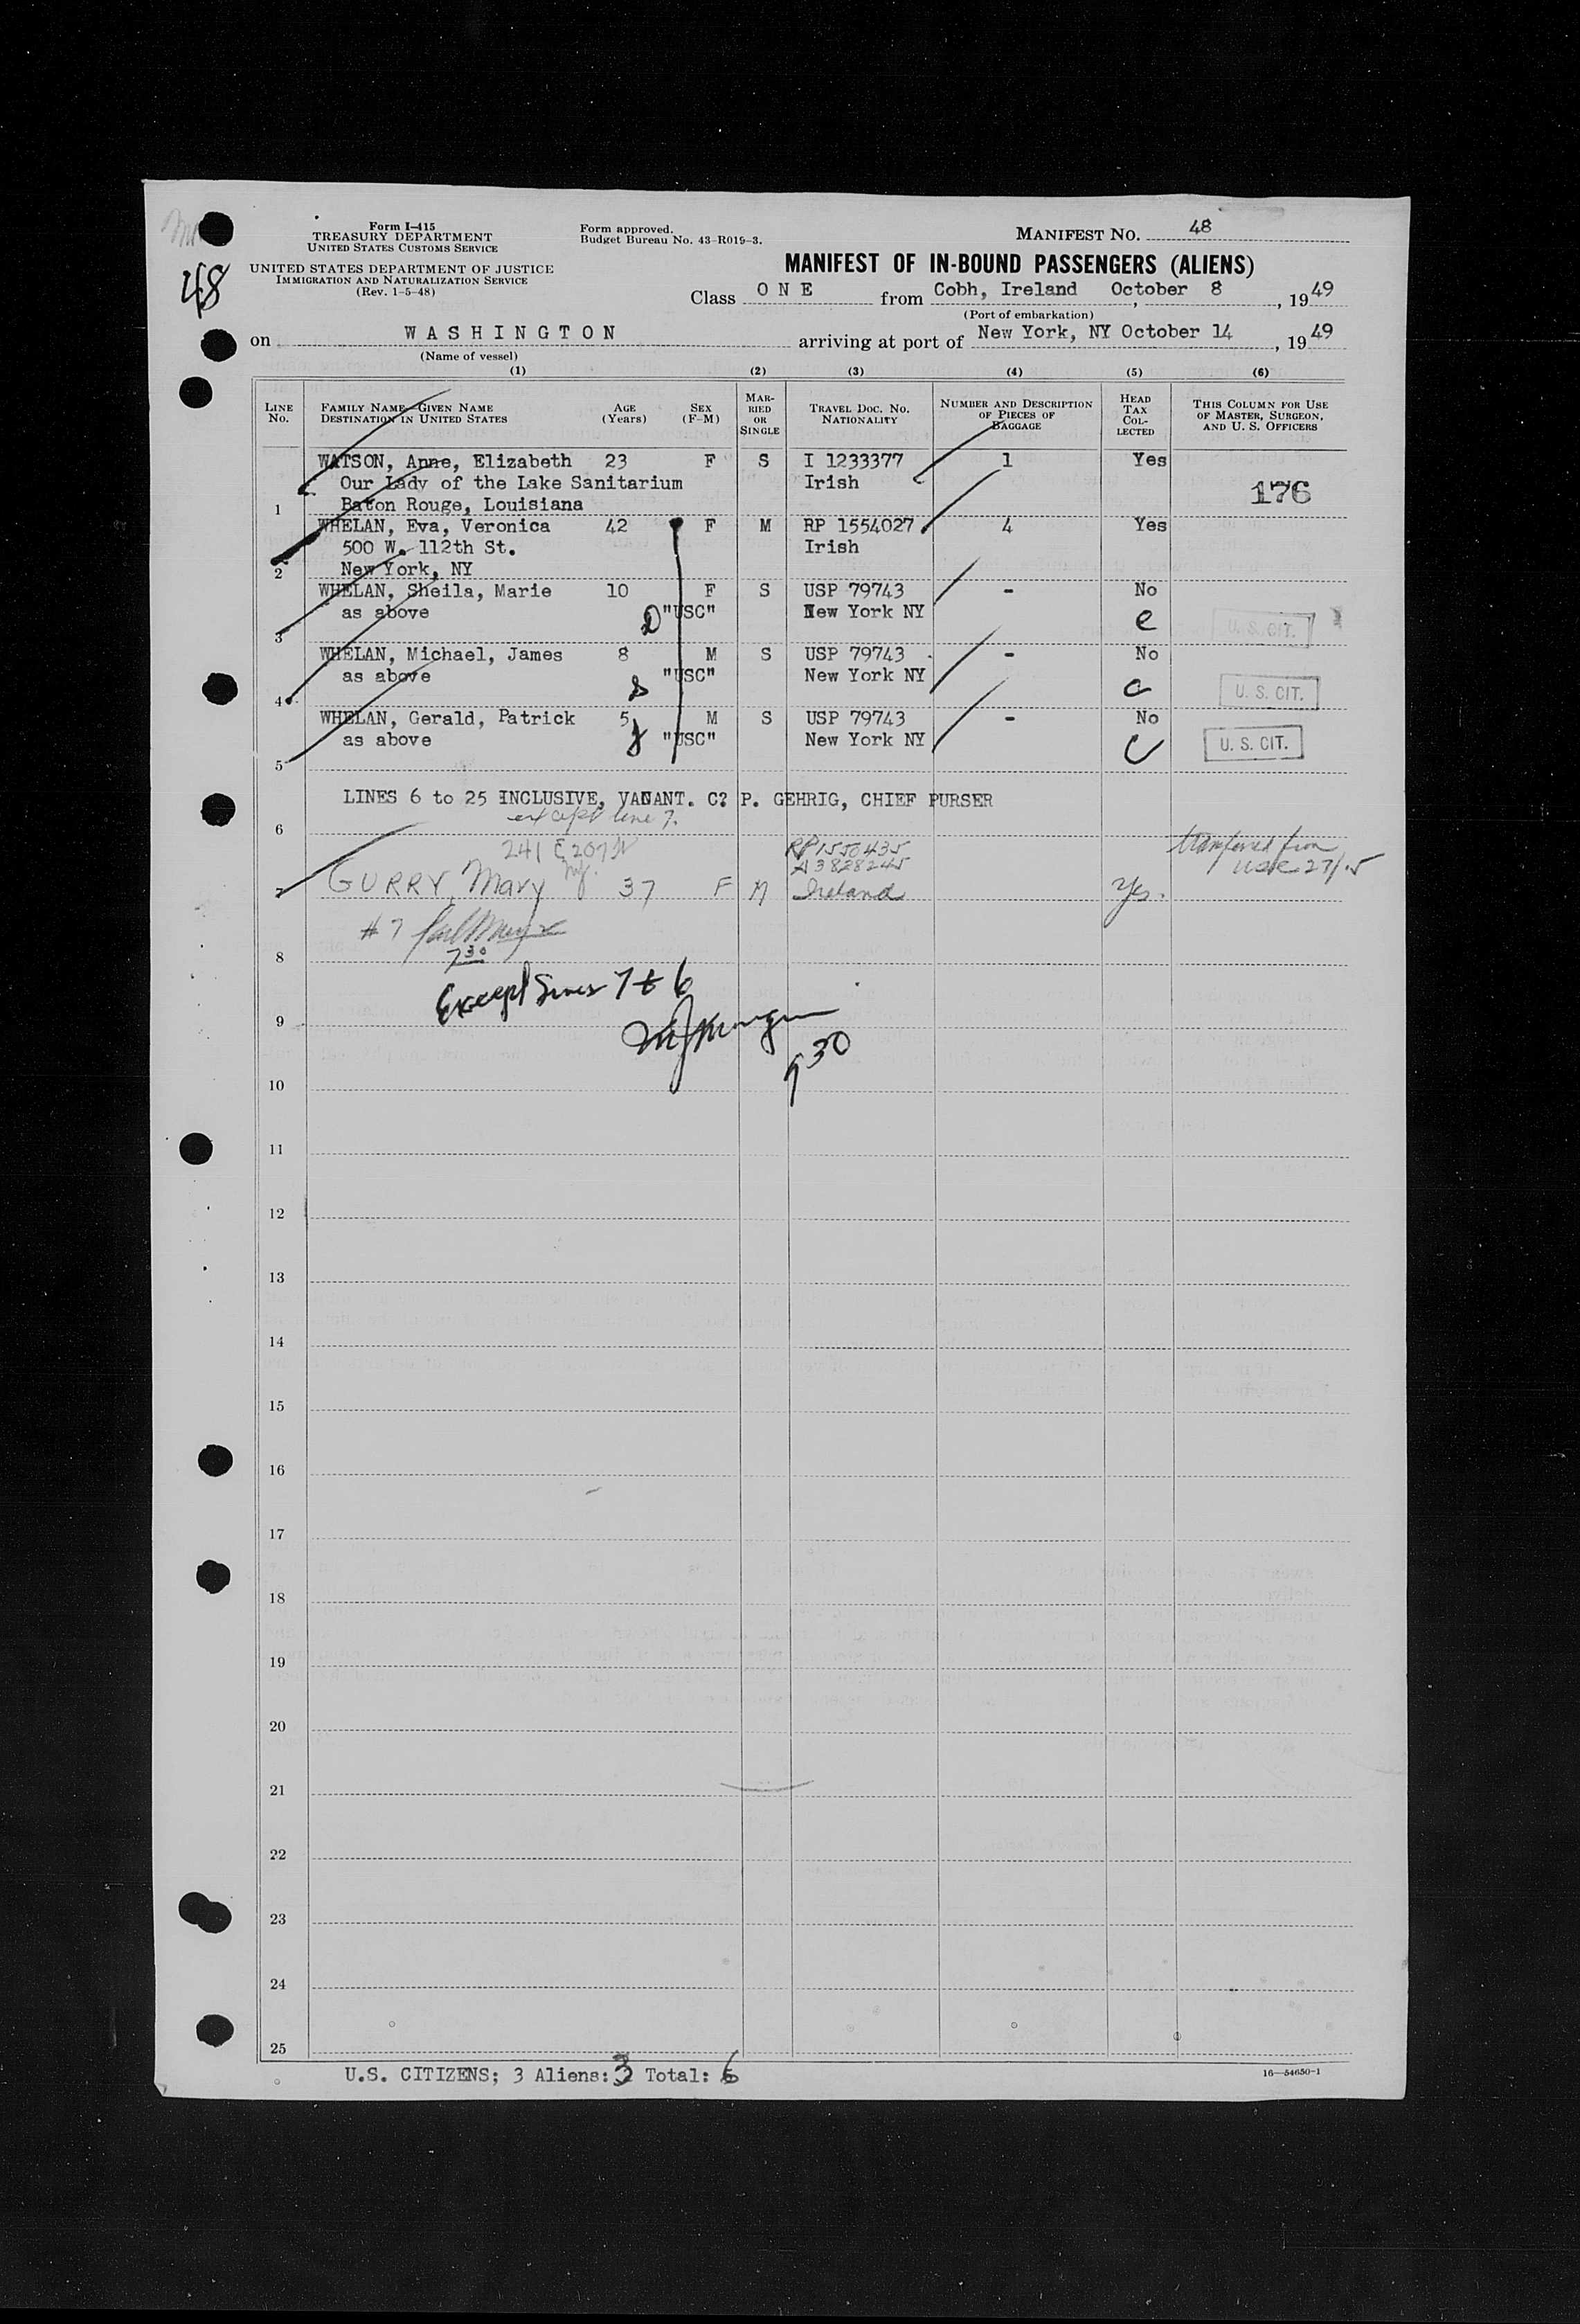 Form I-415
TREASURY DEPARTMENT
UNITED STATES CUSTOMS SERVICE
Form approved.
Budget Bureau No. 43-R019-3.
MANIFEST NO. 48
48
UNITED STATES DEPARTMENT OF JUSTICE
IMMIGRATION AND NATURALIZATION SERVICE
(Rev. 1-5-48)
MANIFEST OF IN-BOUND PASSENGERS (ALIENS)
Class O N E from Cobh, Ireland October 8, 1949
(Port of embarkation)
on WASHINGTON arriving at port of New York, NY October 14, 1949
(Name of vessel)
(1) (2) (3) (4) (5) (6)
LINE No. FAMILY NAME—GIVEN NAME DESTINATION IN UNITED STATES AGE (Years) SEX (F-M) MARRIED OR SINGLE TRAVEL DOC. NO. NATIONALITY NUMBER AND DESCRIPTION OF PIECES OF BAGGAGE HEAD TAX COLLECTED THIS COLUMN FOR USE OF MASTER, SURGEON, AND U. S. OFFICERS
WATSON, Anne, Elizabeth 23 F S I 1233377 1 Yes
Our Lady of the Lake Sanitarium Irish 176
1 Baton Rouge, Louisiana
WHELAN, Eva, Veronica 42 F M RP 1554027 4 Yes
500 W. 112th St. Irish
2 New York, NY
WHELAN, Sheila, Marie 10 F S USP 79743 - No
as above "USC" New York NY U. S. CIT.
3
WHELAN, Michael, James 8 M S USP 79743 - No
as above "USC" New York NY U. S. CIT.
4
WHELAN, Gerald, Patrick 5 M S USP 79743 - No
as above "USC" New York NY C U. S. CIT.
5
LINES 6 to 25 INCLUSIVE, VACANT. C? P. GEHRIG, CHIEF PURSER
except line 7.
6
241 E 207 RP1550435 transferred from
A3828245
7 GURRY, Mary 37 F M Ireland Yes.
#7
7 30
8
Except Lines 7 & 6
9
9 30
10
11
12
13
14
15
16
17
18
19
20
21
22
23
24
25
U.S. CITIZENS; 3 Aliens: 3 Total: 6
16—54650-1